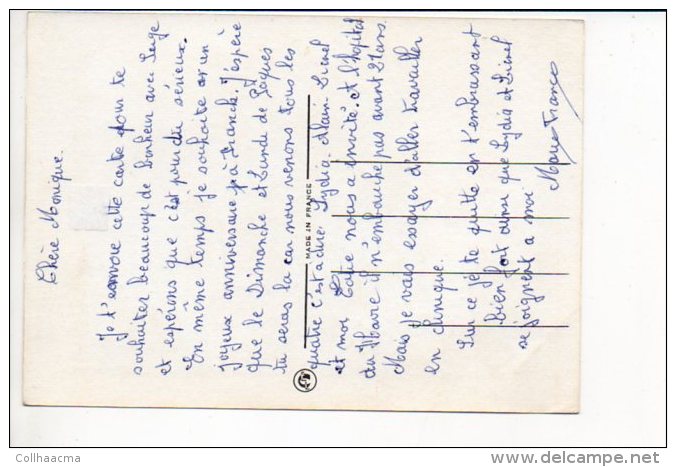 Chère Monique.
Je t'envoie cette carte pour te
souhaiter beaucoup de bonheur avec Serge
et espérons que c'est pour du sérieux.
En même temps je souhaite un
joyeux anniversaire à Franck. J'espère
que le Dimanche et Lundi de Pâques
tu seras la car nous venons tous les
MADE IN FRANCE
quatre c'est a dire Lydia. Alain. Lionel
et moi nous a invité. et l'hopital
du Havre il n'embauche pas avant 21ans.
Mais je vais essayer d'aller travailler
en clinique.
Sur ce je te quitte en t'embrassant
bien fort ainsi que Lydia et Lionel
se joignent a moi
Marie France
Collhaacma
www.delcampe.net